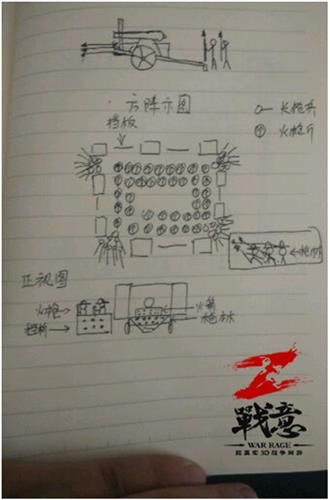 方阵示图
挡板
长枪兵
火枪
正视图
火枪
挡板
火箭
枪林
戰意
WAR RAGE
超真实3D战争网游